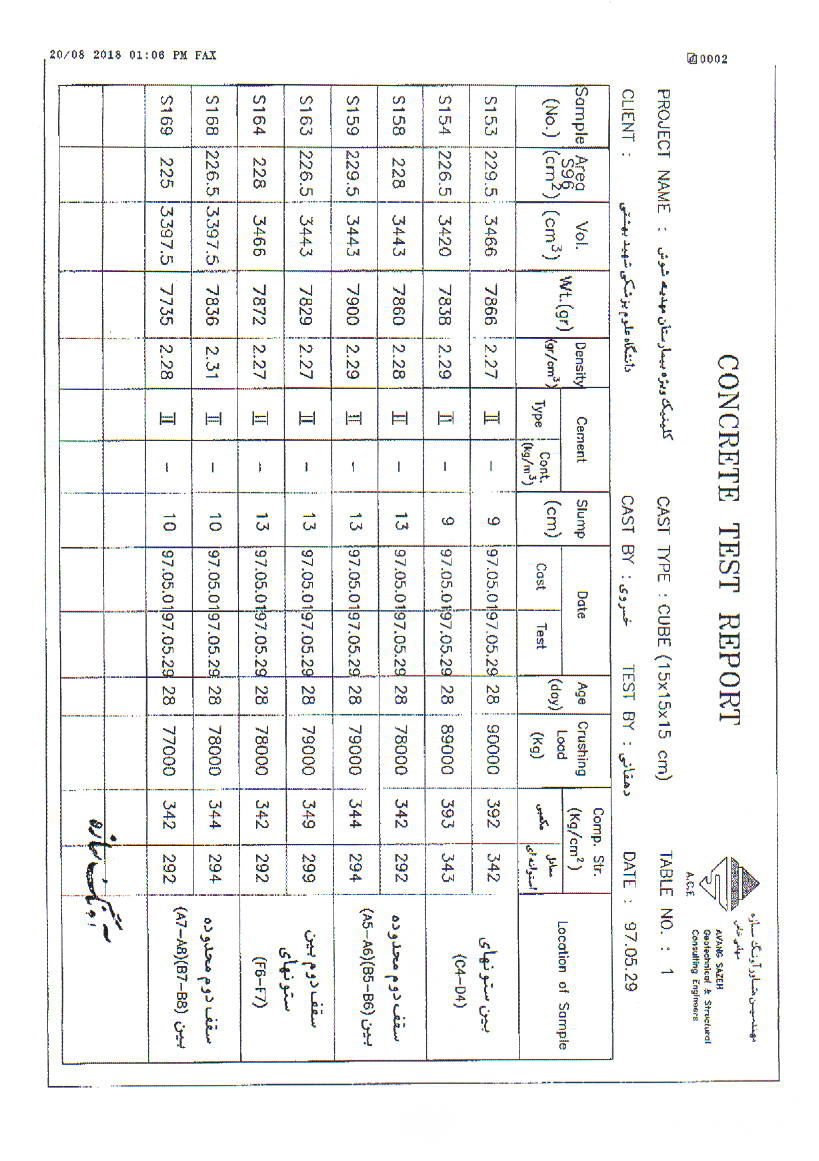 20/08 2018 01:06 PM FAX
0002
CONCRETE TEST REPORT
مهندسین مشاور آونگ سازه
A.G.E
AVANG SAZEH
Geotechnical & Structural
Consulting Engineers
PROJECT NAME : کلینیک ویژه بیمارستان مهدیه شوش CAST TYPE : CUBE (15x15x15 cm) TABLE NO. : 1
CLIENT : دانشگاه علوم پزشکی شهید بهشتی CAST BY : خسروی TEST BY : دهقانی DATE : 97.05.29
Sample (No.) Area S96 (cm²) Vol. (cm³) Wt.(gr) Density (gr/cm³) Cement Type Cont. (kg/m³) Slump (cm) Date Cast Test Age (day) Crushing Load (Kg) Comp. Str. (Kg/cm²) مکعبی معادل استوانه‌ای Location of Sample
S153 229.5 3466 7866 2.27 II - 9 97.05.01 97.05.29 28 90000 392 342
S154 226.5 3420 7838 2.29 II - 9 97.05.01 97.05.29 28 89000 393 343
بین ستونهای
(C4-D4)
S158 228 3443 7860 2.28 II - 13 97.05.01 97.05.29 28 78000 342 292
S159 229.5 3443 7900 2.29 II - 13 97.05.01 97.05.29 28 79000 344 294
سقف دوم محدوده
بین (A5-A6)(B5-B6)
S163 226.5 3443 7829 2.27 II - 13 97.05.01 97.05.29 28 79000 349 299
S164 228 3466 7872 2.27 II - 13 97.05.01 97.05.29 28 78000 342 292
سقف دوم بین
ستونهای
(F6-F7)
S168 226.5 3397.5 7836 2.31 II - 10 97.05.01 97.05.29 28 78000 344 294
S169 225 3397.5 7735 2.28 II - 10 97.05.01 97.05.29 28 77000 342 292
سقف دوم محدوده
بین (A7-A8)(B7-B8)
آونگ سازه